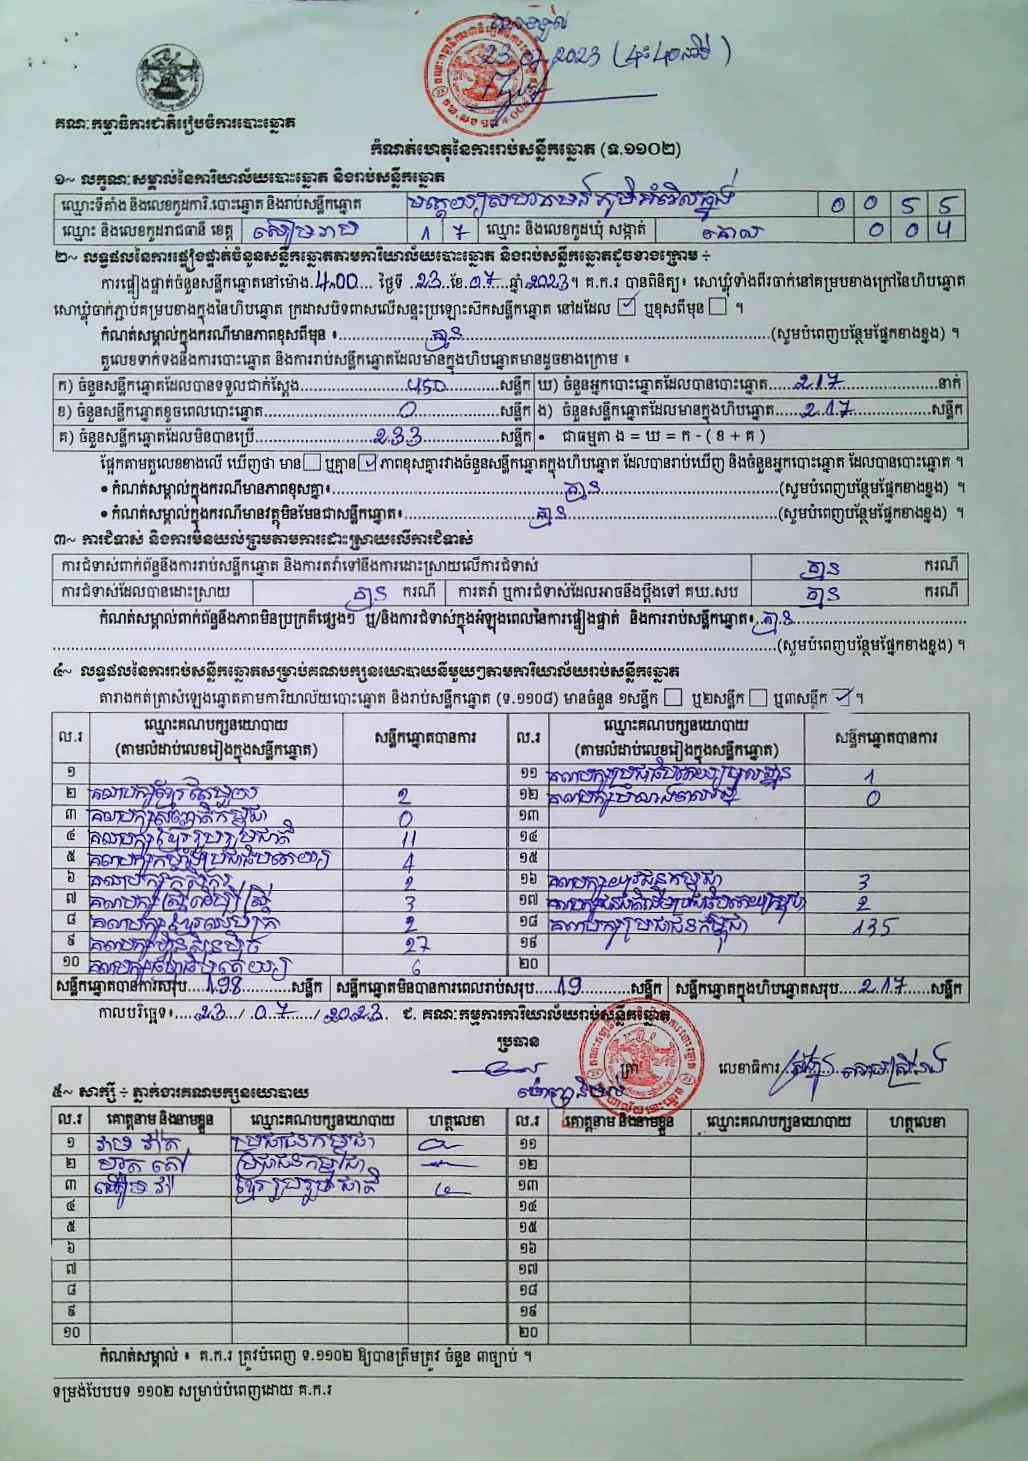 23 . 07 . 2023 (4:40នាទី)
គណៈកម្មាធិការជាតិរៀបចំការបោះឆ្នោត
កំណត់ហេតុនៃការរាប់សន្លឹកឆ្នោត (ទ.១១០២)
១~ លក្ខណៈសម្គាល់នៃការិយាល័យបោះឆ្នោត និងរាប់សន្លឹកឆ្នោត
ឈ្មោះទីតាំង និងលេខកូដការិ.បោះឆ្នោត និងរាប់សន្លឹកឆ្នោត 0 0 5 5
ឈ្មោះ និងលេខកូដរាជធានី ខេត្ត សៀមរាប 1 7 ឈ្មោះ និងលេខកូដឃុំ សង្កាត់ គោល 0 0 4
២~ លទ្ធផលនៃការផ្ទៀងផ្ទាត់ចំនួនសន្លឹកឆ្នោតតាមការិយាល័យបោះឆ្នោត និងរាប់សន្លឹកឆ្នោតដូចខាងក្រោម ÷
ការផ្ទៀងផ្ទាត់ចំនួនសន្លឹកឆ្នោតនៅម៉ោង 4:00 ថ្ងៃទី 23 ខែ 07 ឆ្នាំ 2023។ គ.ក.រ បានពិនិត្យ៖ សោឃ្លុំទាំងពីរចាក់នៅគម្របខាងក្រៅនៃហិបឆ្នោត
សោឃ្លុំចាក់ភ្ជាប់គម្របខាងក្នុងនៃហិបឆ្នោត ក្រដាសបិទពាសលើសន្ទះប្រឡោះស៊កសន្លឹកឆ្នោត នៅដដែល ☑ ឬខុសពីមុន ☐ ។
កំណត់សម្គាល់ក្នុងករណីមានភាពខុសពីមុន ៖ គ្មាន (សូមបំពេញបន្ថែមផ្នែកខាងខ្នង) ។
តួលេខទាក់ទងនឹងការបោះឆ្នោត និងការរាប់សន្លឹកឆ្នោតដែលមានក្នុងហិបឆ្នោតមានដូចខាងក្រោម ៖
ក) ចំនួនសន្លឹកឆ្នោតដែលបានទទួលជាក់ស្តែង 450 សន្លឹក ឃ) ចំនួនអ្នកបោះឆ្នោតដែលបានបោះឆ្នោត 217 នាក់
ខ) ចំនួនសន្លឹកឆ្នោតខូចពេលបោះឆ្នោត 0 សន្លឹក ង) ចំនួនសន្លឹកឆ្នោតដែលមានក្នុងហិបឆ្នោត 217 សន្លឹក
គ) ចំនួនសន្លឹកឆ្នោតដែលមិនបានប្រើ 233 សន្លឹក • ជាធម្មតា ង = ឃ = ក - ( ខ + គ )
ផ្អែកតាមតួលេខខាងលើ ឃើញថា មាន ☐ ឬគ្មាន ☑ ភាពខុសគ្នារវាងចំនួនសន្លឹកឆ្នោតក្នុងហិបឆ្នោត ដែលបានរាប់ឃើញ និងចំនួនអ្នកបោះឆ្នោត ដែលបានបោះឆ្នោត ។
• កំណត់សម្គាល់ក្នុងករណីមានភាពខុសគ្នា៖ គ្មាន (សូមបំពេញបន្ថែមផ្នែកខាងខ្នង) ។
• កំណត់សម្គាល់ក្នុងករណីមានវត្ថុមិនមែនជាសន្លឹកឆ្នោត៖ គ្មាន (សូមបំពេញបន្ថែមផ្នែកខាងខ្នង) ។
៣~ ការជំទាស់ និងការមិនយល់ព្រមតាមការដោះស្រាយលើការជំទាស់
ការជំទាស់ពាក់ព័ន្ធនឹងការរាប់សន្លឹកឆ្នោត និងការតវ៉ាទៅនឹងការដោះស្រាយលើការជំទាស់ គ្មាន ករណី
ការជំទាស់ដែលបានដោះស្រាយ គ្មាន ករណី ការតវ៉ា ឬការជំទាស់ដែលអាចនឹងប្តឹងទៅ គឃ.សប គ្មាន ករណី
កំណត់សម្គាល់ពាក់ព័ន្ធនឹងភាពមិនប្រក្រតីផ្សេងៗ ឬ/និងការជំទាស់ក្នុងអំឡុងពេលនៃការផ្ទៀងផ្ទាត់ និងការរាប់សន្លឹកឆ្នោត៖ គ្មាន
(សូមបំពេញបន្ថែមផ្នែកខាងខ្នង) ។
៤~ លទ្ធផលនៃការរាប់សន្លឹកឆ្នោតសម្រាប់គណបក្សនយោបាយនីមួយៗតាមការិយាល័យរាប់សន្លឹកឆ្នោត
តារាងកត់ត្រាសំឡេងឆ្នោតតាមការិយាល័យបោះឆ្នោត និងរាប់សន្លឹកឆ្នោត (ទ.១១០៨) មានចំនួន ១សន្លឹក ☐ ឬ២សន្លឹក ☐ ឬ៣សន្លឹក ☑ ។
ល.រ ឈ្មោះគណបក្សនយោបាយ (តាមលំដាប់លេខរៀងក្នុងសន្លឹកឆ្នោត) សន្លឹកឆ្នោតបានការ ល.រ ឈ្មោះគណបក្សនយោបាយ (តាមលំដាប់លេខរៀងក្នុងសន្លឹកឆ្នោត) សន្លឹកឆ្នោតបានការ
១ ១១ 1
២ គណបក្សខ្មែរតែមួយ 2 ១២ 0
៣ គណបក្សសញ្ជាតិកម្ពុជា 0 ១៣
៤ គណបក្សខ្មែររួបរួមជាតិ 11 ១៤
៥ គណបក្សកម្លាំងប្រជាធិបតេយ្យ 4 ១៥
៦ គណបក្សកសិករ 2 ១៦ គណបក្សយុវជនកម្ពុជា 3
៧ គណបក្សស្ត្រីដើម្បីស្ត្រី 3 ១៧ 2
៨ 2 ១៨ គណបក្សប្រជាជនកម្ពុជា 135
៩ គណបក្សហ្វ៊ុនស៊ិនប៉ិច 27 ១៩
១០ 6 ២០
សន្លឹកឆ្នោតបានការសរុប 198 សន្លឹក សន្លឹកឆ្នោតមិនបានការពេលរាប់សរុប 19 សន្លឹក សន្លឹកឆ្នោតក្នុងហិបឆ្នោតសរុប 217 សន្លឹក
កាលបរិច្ឆេទ៖ 23 / 07 / 2023 ជ. គណៈកម្មការការិយាល័យរាប់សន្លឹកឆ្នោត
ប្រធាន
ត្រា លេខាធិការ
៥~ សាក្សី ÷ ភ្នាក់ងារគណបក្សនយោបាយ
ល.រ គោត្តនាម និងនាមខ្លួន ឈ្មោះគណបក្សនយោបាយ ហត្ថលេខា ល.រ គោត្តនាម និងនាមខ្លួន ឈ្មោះគណបក្សនយោបាយ ហត្ថលេខា
១ ប្រជាជនកម្ពុជា ១១
២ ប្រជាជនកម្ពុជា ១២
៣ ខ្មែររួបរួមជាតិ ១៣
៤ ១៤
៥ ១៥
៦ ១៦
៧ ១៧
៨ ១៨
៩ ១៩
១០ ២០
កំណត់សម្គាល់ ៖ គ.ក.រ ត្រូវបំពេញ ទ.១១០២ ឱ្យបានត្រឹមត្រូវ ចំនួន ៣ច្បាប់ ។
ទម្រង់បែបបទ ១១០២ សម្រាប់បំពេញដោយ គ.ក.រ